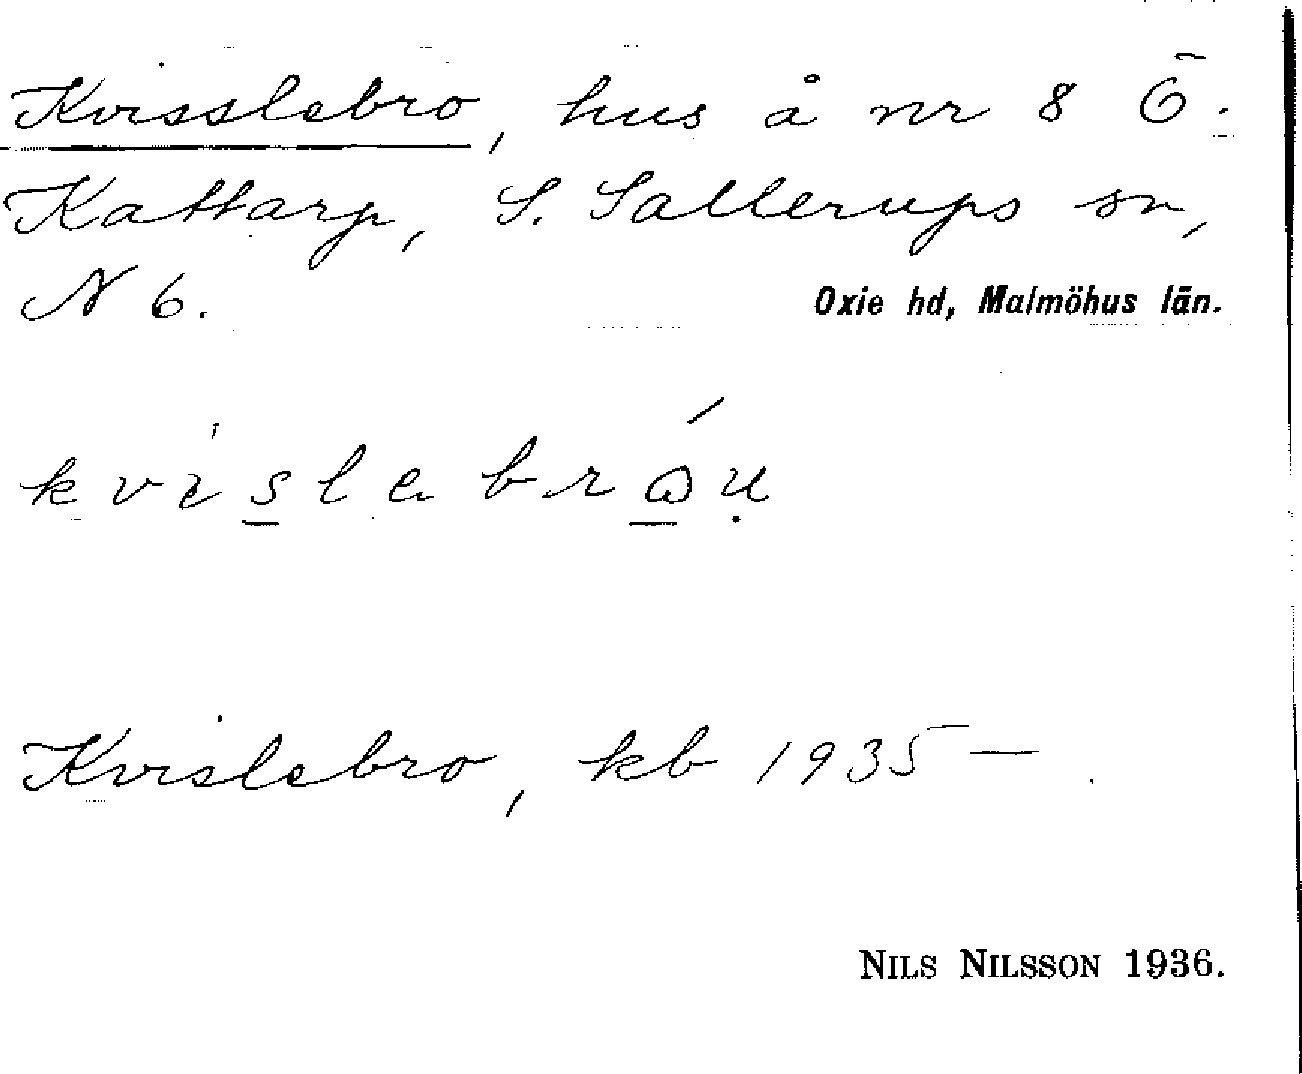 Kvisslebro, hus å nr 8 Ö.
Kattarp, S. Sallerups sn,
N 6.
Oxie hd, Malmöhus län.
Kvislebro, kb 1935 — .
NILS NILSSON 1936.